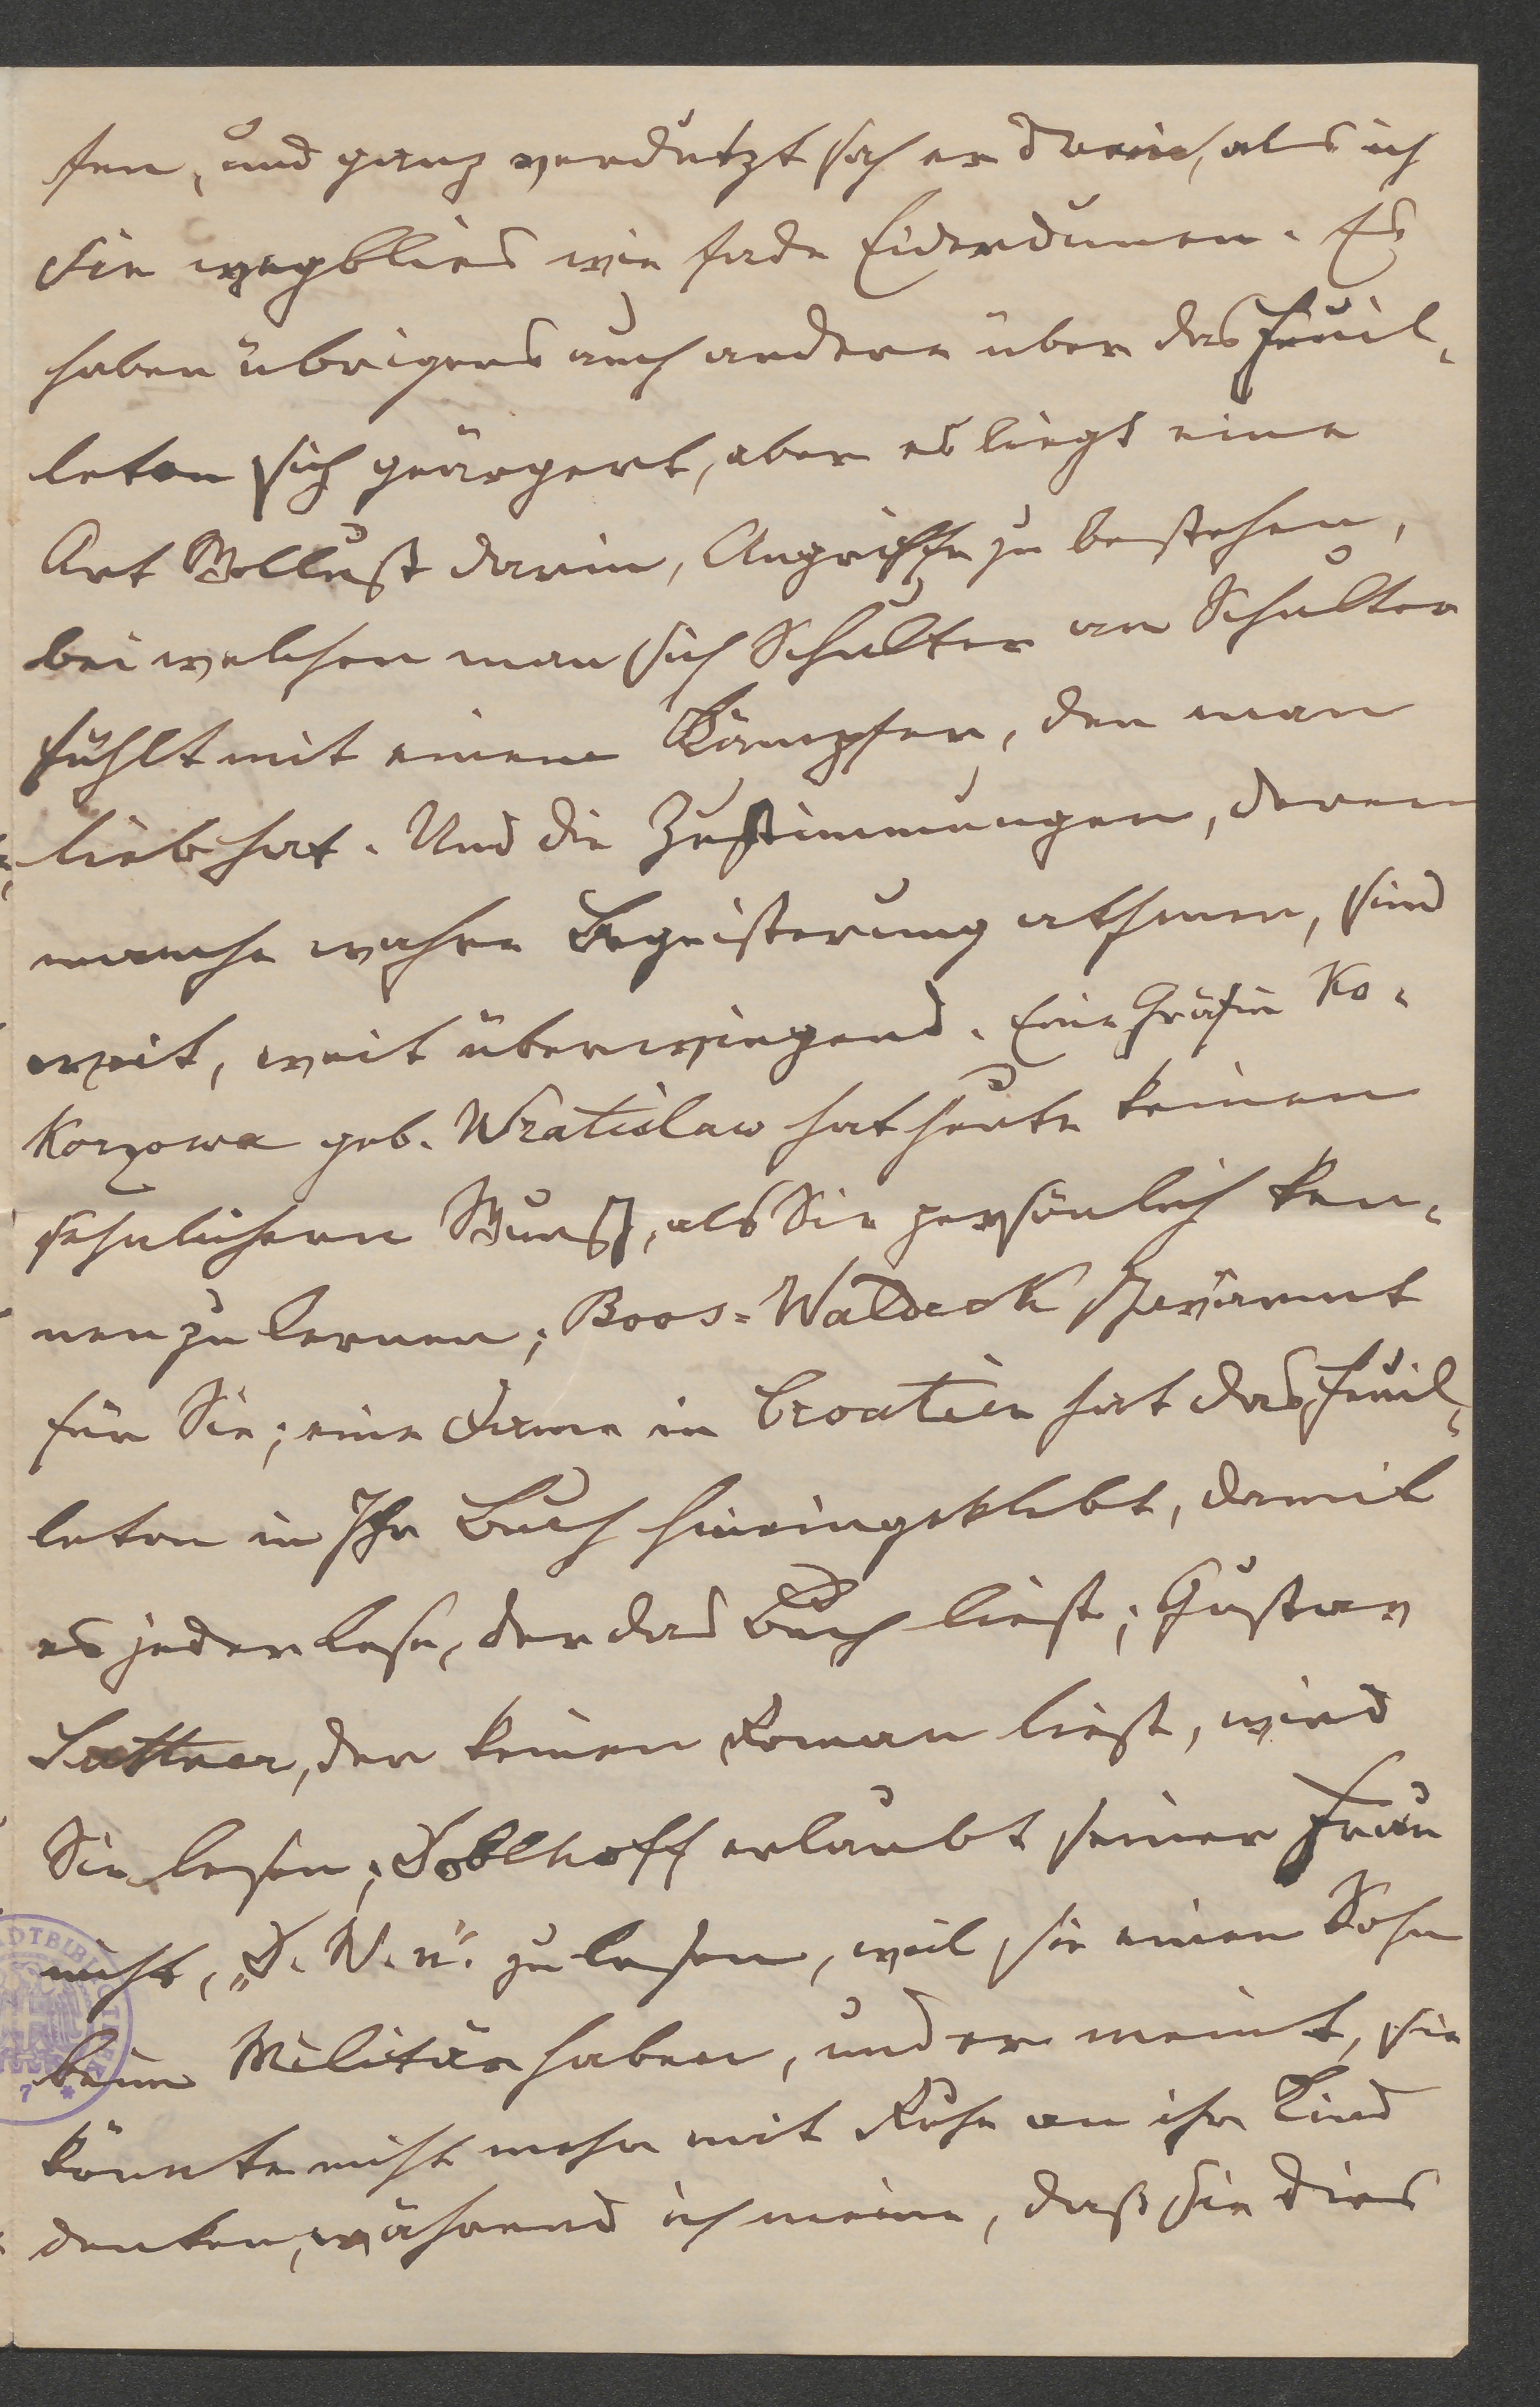 fen, und ganz verdutzt sah er drein, als ich
sie wegblies wie fade Eiderdunen. Es
haben übrigens auch andere über das Feuil-
leton sich geärgert, aber es liegt eine
Art Wollust darin, Angriffe zu bestehen,
bei welchen man sich Schulter an Schulter
fühlt mit einem Kämpfer, den man
lieb hat. Und die Zustimmungen, deren
manche wahre Begeisterung athmen, sind
weit, weit überwiegend. Eine Gräfin Ko-
Korzowa geb. Wratislaw hat heute keinen
sehnlichern Wunsch, als Sie persönlich ken-
nen zu lernen; Boos-Waldeck schwärmt
für Sie; eine Dame in Croatien hat das Feuil-
leton in Ihr Buch hineingeklebt, damit
es jeder lese, der das Buch liest; Gustav
Suttner, der keinen Roman liest, wird
Sie lesen; Doblhoff erlaubt seiner Frau
nicht, „D. W. n." zu lesen, weil sie einen Sohn
beim Militär haben, und er meint, sie
könnte nicht mehr mit Ruhe an ihr Kind
denken, während ich meine, daß sie dies